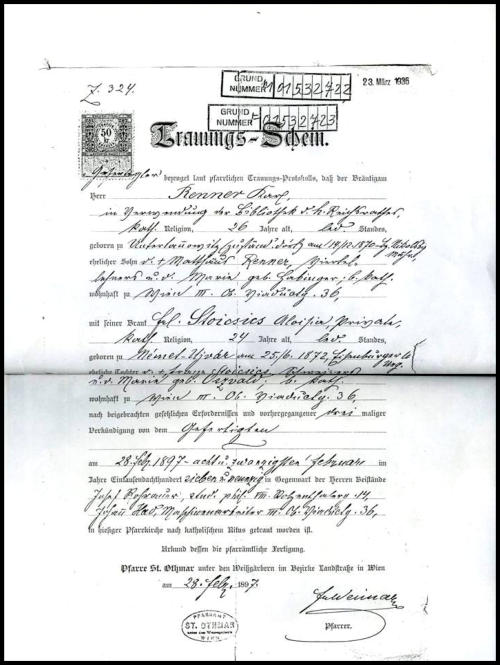 Z. 324.
GRUND NUMMER M 01532722
23. März 1936
GRUND NUMMER F 01532723
50 kr
Trauungs-Schein.
Gefertigter bezeuget laut pfarrlichen Trauungs-Protokolls, daß der Bräutigam
Herr Renner Karl,
in Verwendung der Bibliothek d. h. Reichsrathes,
kath. Religion, 26 Jahre alt, led. Standes,
geboren zu Untertannowitz, am 14/12. 1870
ehelicher Sohn d. + Matthäus Renner,
u. d. Marie geb. Habinger, b. kath.
wohnhaft zu Wien III. Ob. Viaductg. 36,
mit seiner Braut Frl. Stoicsics Aloisia, Private,
kath. Religion, 24 Jahre alt, led. Standes,
geboren zu Német-Ujvár am 25/6. 1872 Eisenburger Co
Ung.
eheliche Tochter d. + Stoicsics
u. d. Marie geb. b. kath.
wohnhaft zu Wien III. Ob. Viaductg. 36,
nach beigebrachten gesetzlichen Erfordernissen und vorhergegangener drei maliger
Verkündigung von dem Gefertigten
am 28. Feb. 1897 - acht u. zwanzigsten Februar im
Jahre Eintausendachthundert sieben u. neunzig in Gegenwart der Herren Beistände
Josef stud. phil. VIII. 14,
Johann Maschinenarbeiter III. Ob. Viaductg. 36,
in hiesiger Pfarrkirche nach katholischem Ritus getraut worden ist.
Urkund dessen die pfarrämtliche Fertigung.
Pfarre St. Othmar unter den Weißgärbern im Bezirke Landstraße in Wien
am 28. Feb. 1897.
PFARRAMT
ST. OTHMAR
unter den Weissgärbern
WIEN
Pfarrer.